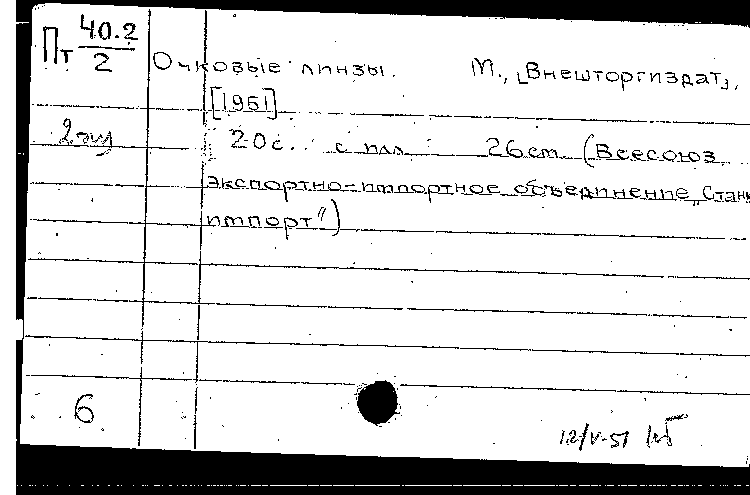 Пт 40.2
2
Очковые линзы. М., [Внешторгиздат],
[1961]
2 экз
20 с. с илл. 26 см. (Всесоюз.
экспортно-импортное объединение „Станк
импорт")
6
12/V-51